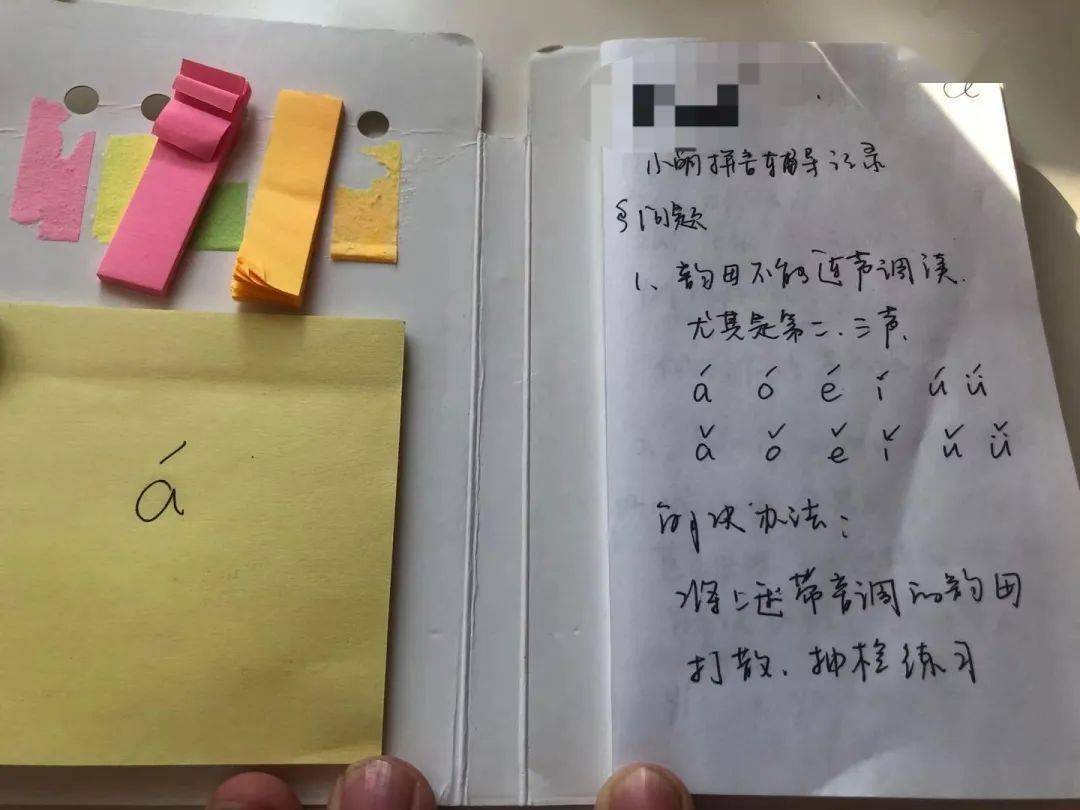 á
小明拼音辅导记录
§问题
1、韵母不能连声调读.
尤其是第二、三声.
á ó é í ú ǘ
ǎ ǒ ě ǐ ǔ ǚ
解决办法:
将上述带音调的韵母
打散、抽检练习